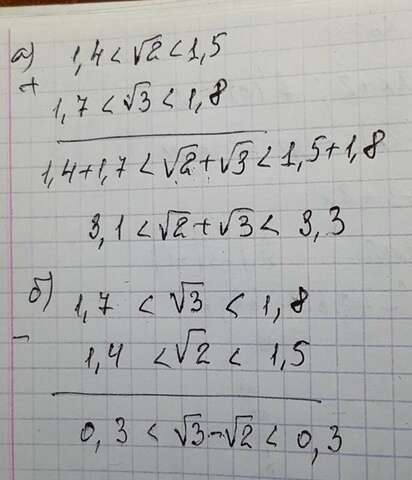 а) 1,4 < √2 < 1,5
+
1,7 < √3 < 1,8
1,4+1,7 < √2+√3 < 1,5+1,8
3,1 < √2+√3 < 3,3
б) 1,7 < √3 < 1,8
−
1,4 < √2 < 1,5
0,3 < √3-√2 < 0,3